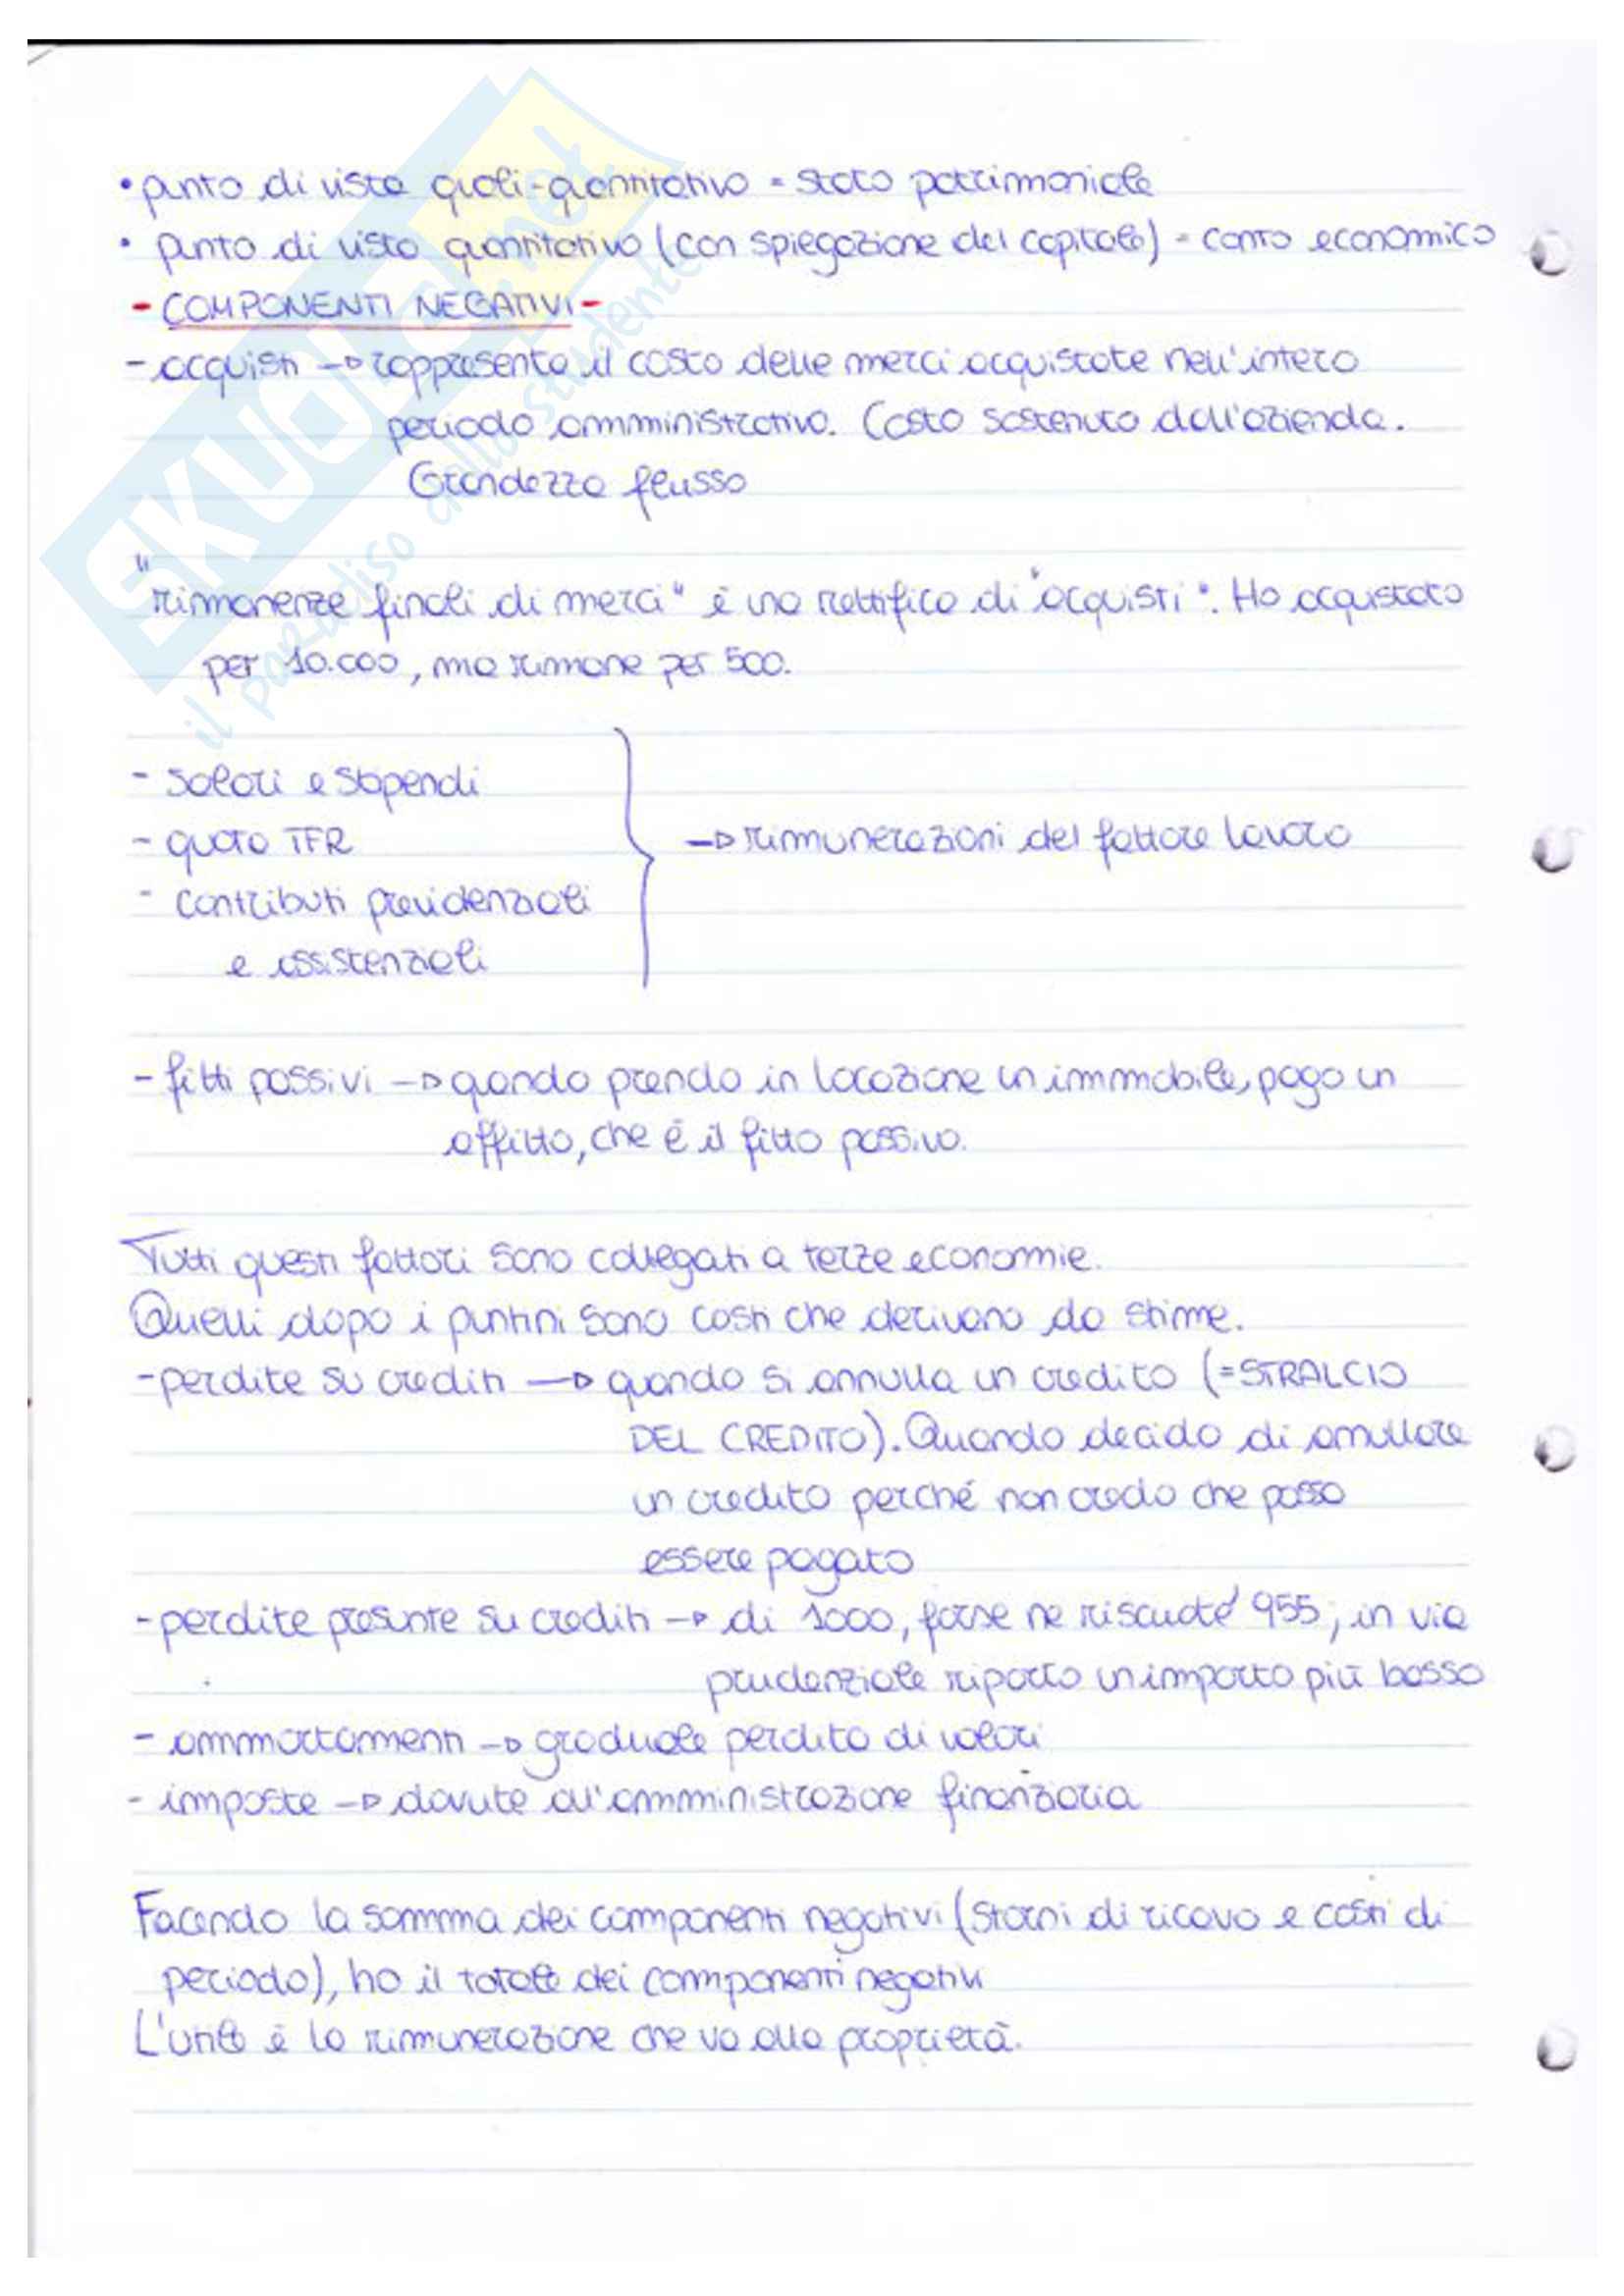 • punto di vista quali-quantitativo = stato patrimoniale
• punto di vista quantitativo (con spiegazione del capitale) = conto economico
- COMPONENTI NEGATIVI -
- acquisti → rappresenta il costo delle merci acquistate nell'intero
periodo amministrativo. Costo sostenuto dall'azienda.
Grandezza flusso
"rimanenze finali di merci" è una rettifica di "acquisti". Ho acquistato
per 10.000, ma rimane per 500.
- salari e stipendi
- quota TFR
- contributi previdenziali
e assistenziali
→ rimunerazioni del fattore lavoro
- fitti passivi → quando prendo in locazione un immobile, pago un
affitto, che è il fitto passivo.
Tutti questi fattori sono collegati a terze economie.
Quelli dopo i puntini sono costi che derivano da stime.
- perdite su crediti → quando si annulla un credito (=STRALCIO
DEL CREDITO). Quando decido di annullare
un credito perché non credo che possa
essere pagato
- perdite presunte su crediti → di 1000, forse ne riscuoté 955; in via
prudenziale riporto un importo più basso
- ammortamenti → graduale perdita di valori
- imposte → dovute all'amministrazione finanziaria
Facendo la somma dei componenti negativi (storni di ricavo e costi di
periodo), ho il totale dei componenti negativi
L'utile è la rimunerazione che va alla proprietà.
SKUOLA.net
il paradiso dello studente